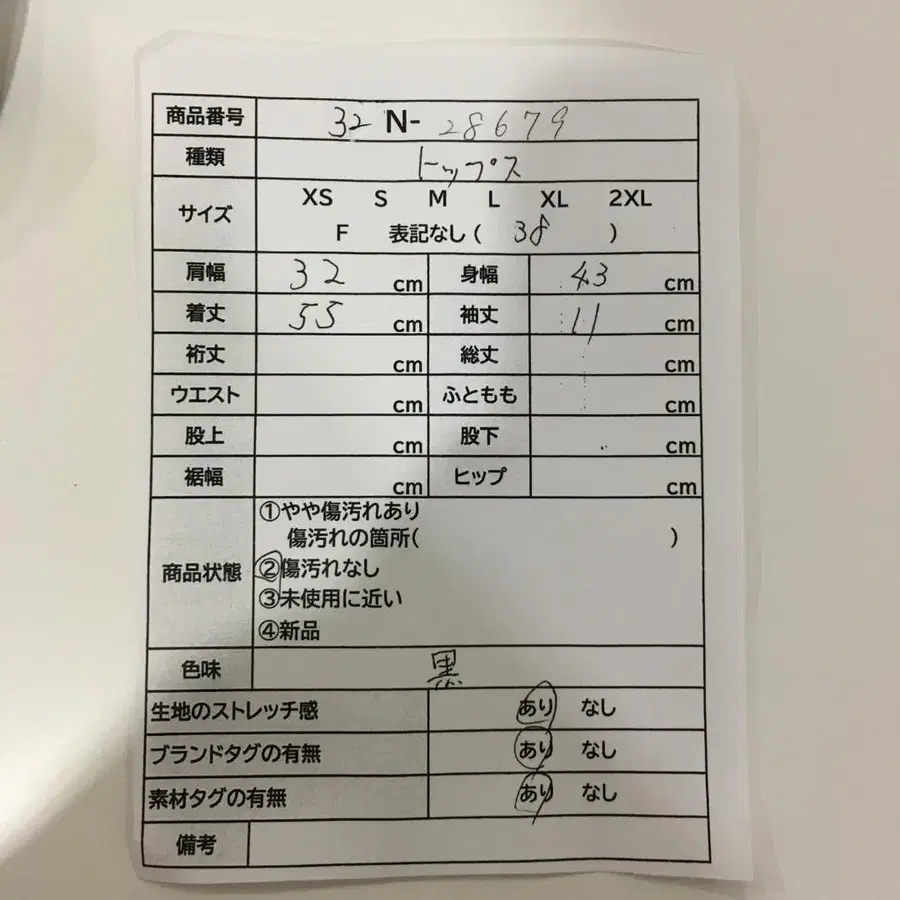 商品番号 32 N- 28679
種類 トップス
サイズ XS S M L XL 2XL
F 表記なし ( 38 )
肩幅 32 cm 身幅 43 cm
着丈 55 cm 袖丈 11 cm
裄丈 cm 総丈 cm
ウエスト cm ふともも cm
股上 cm 股下 cm
裾幅 cm ヒップ cm
商品状態 ①やや傷汚れあり
傷汚れの箇所( )
②傷汚れなし
③未使用に近い
④新品
色味 黒
生地のストレッチ感 あり なし
ブランドタグの有無 あり なし
素材タグの有無 あり なし
備考